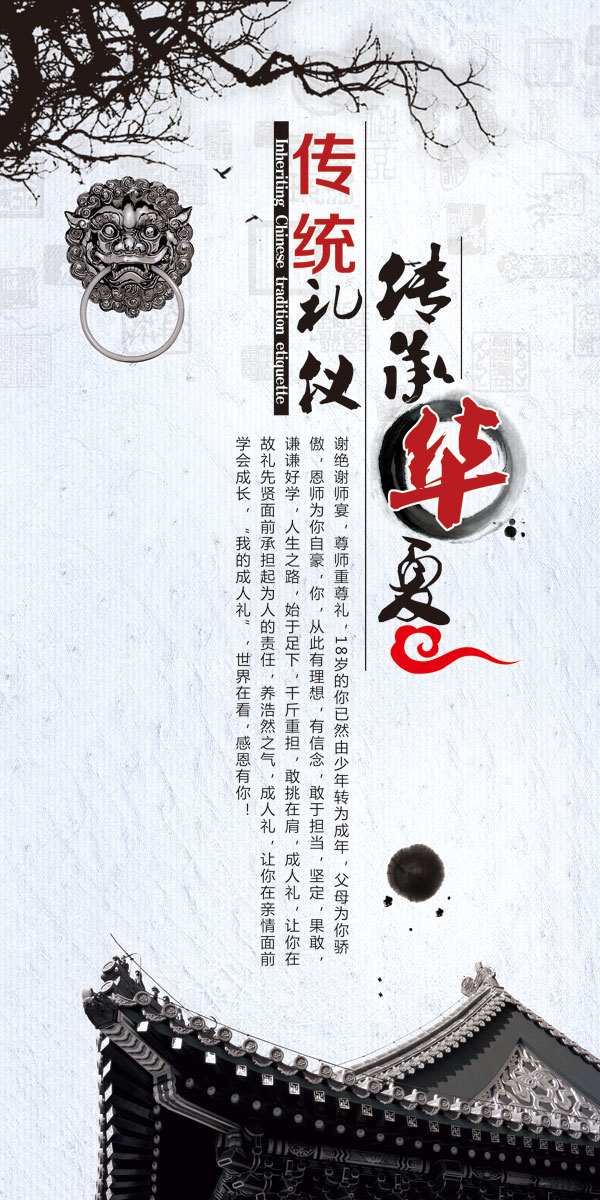 传承华夏
传统礼仪
Inheriting Chinese tradition etiquette
谢绝谢师宴，尊师重尊礼，18岁的你已然由少年转为成年，父母为你骄
傲，恩师为你自豪，你，从此有理想，有信念，敢于担当，坚定，果敢，
谦谦好学，人生之路，始于足下，千斤重担，敢挑在肩，成人礼，让你在
故礼先贤面前承担起为人的责任，养浩然之气，成人礼，让你在亲情面前
学会成长，“我的成人礼”，世界在看，感恩有你！